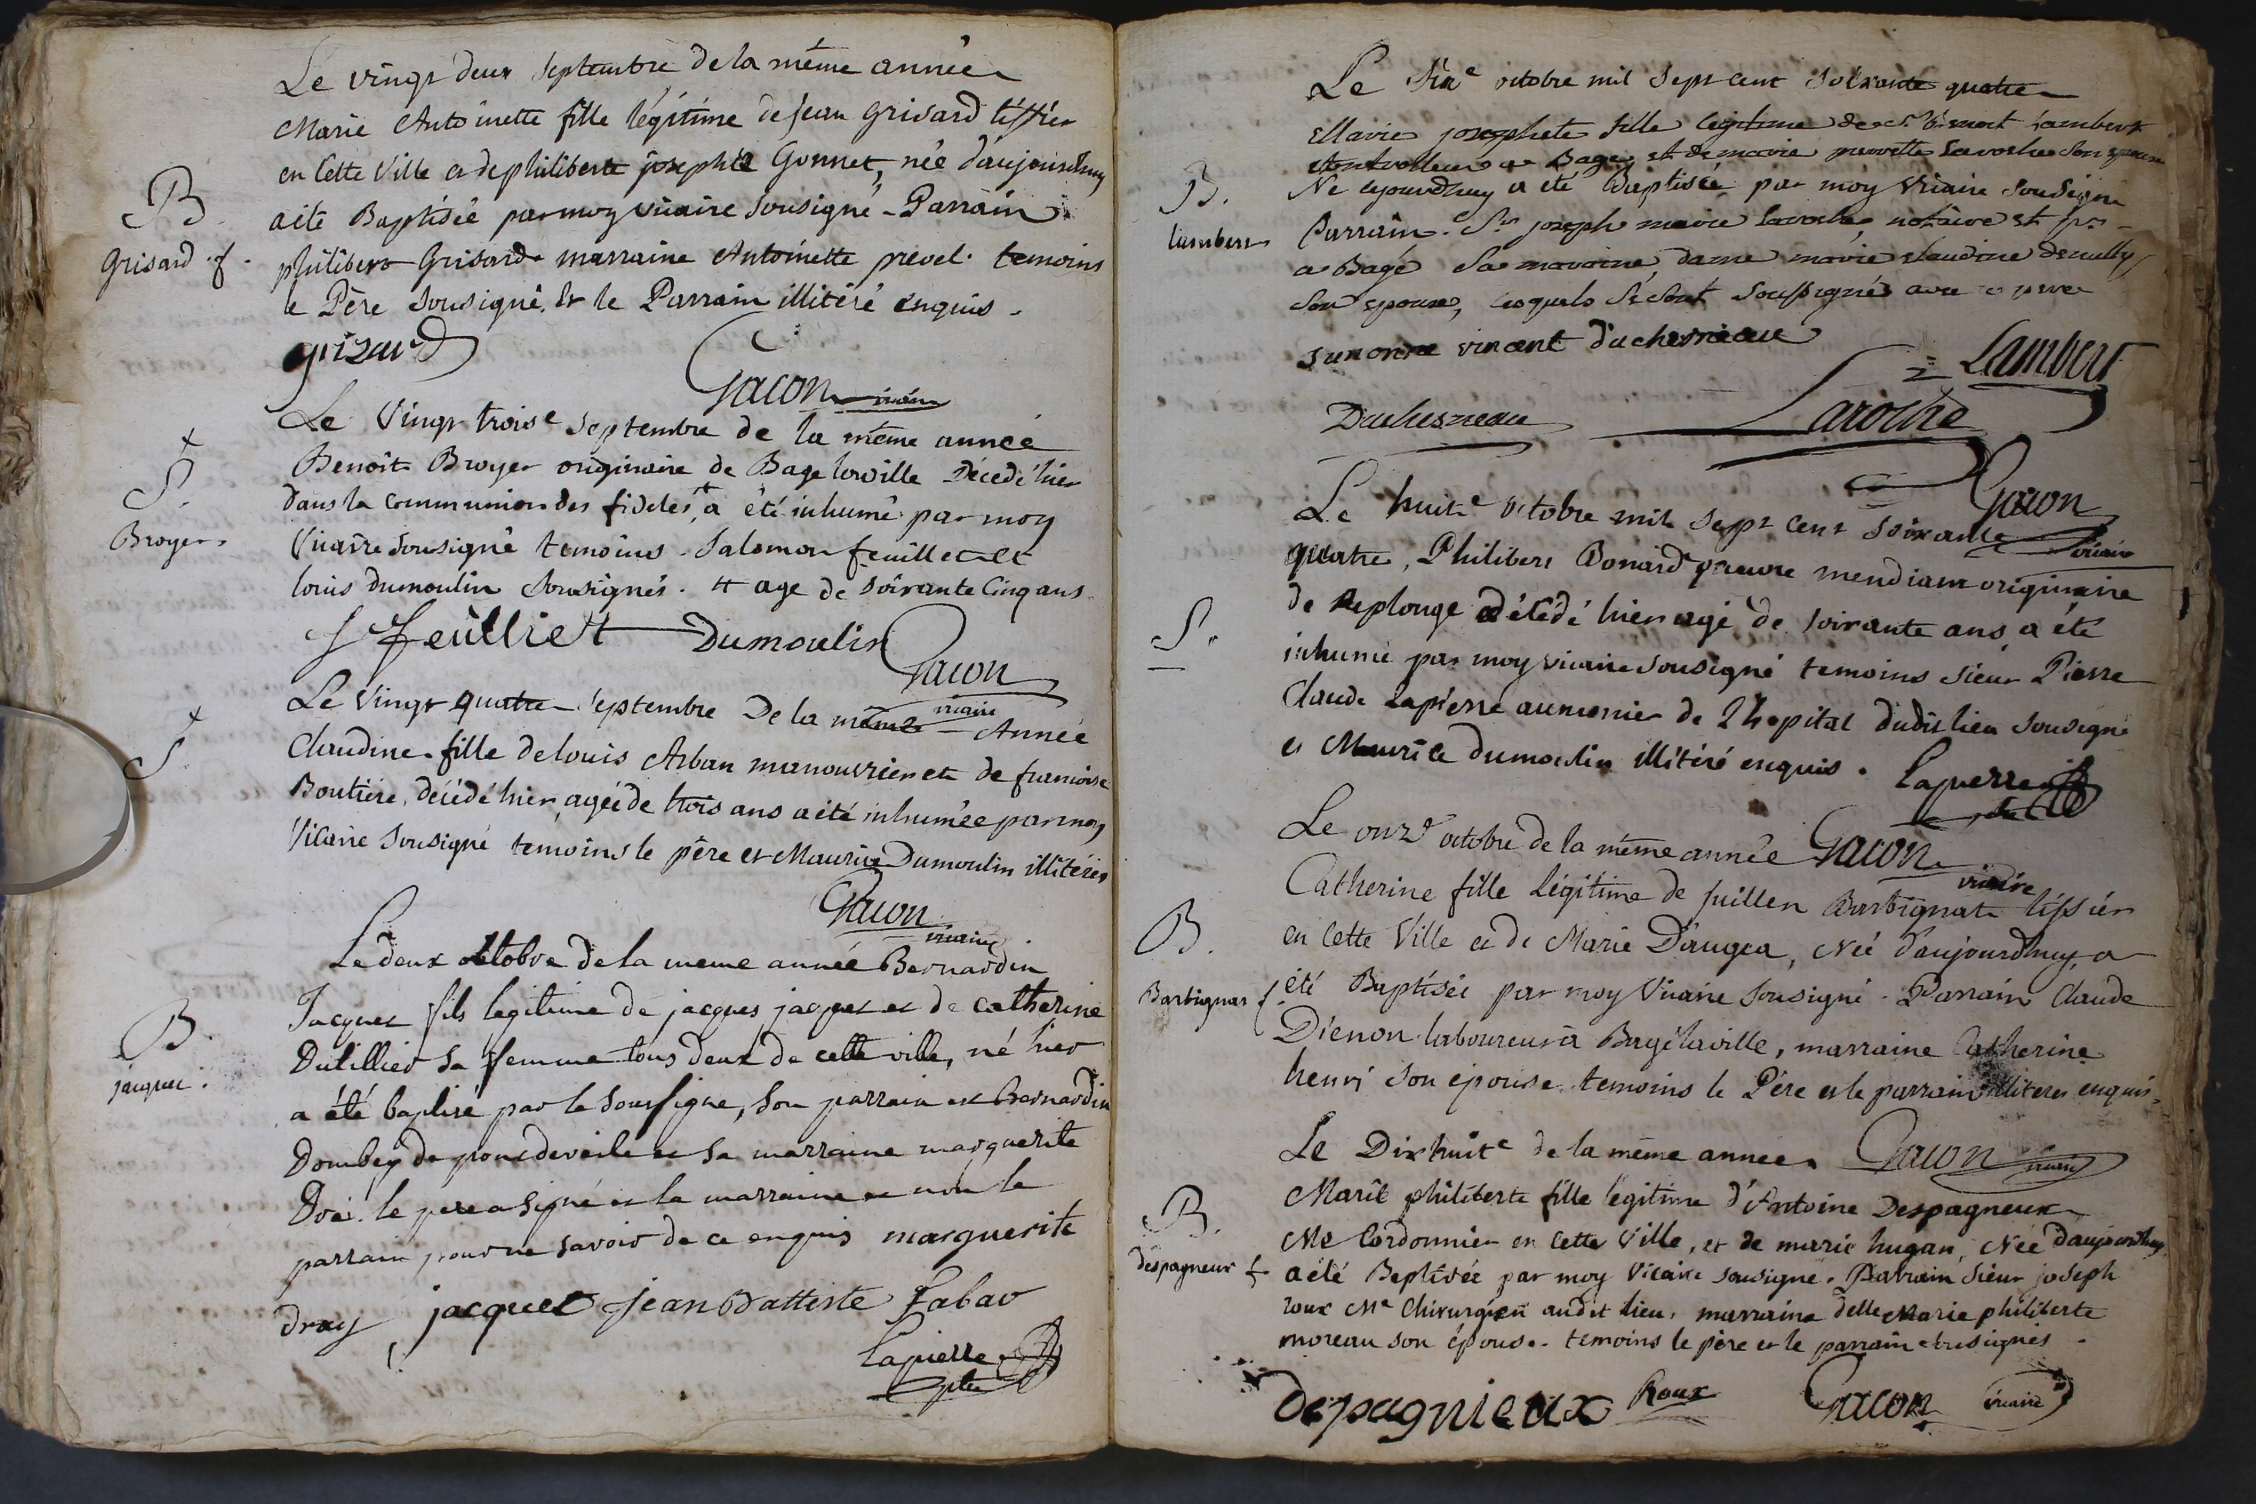 Le vingt deux Septembre de la même année
Marie Antoinette fille légitime de jean Grisard tissier
en Cette Ville et de philiberte josephte Gonnet, née d'aujourdhuy
B
a été Baptisée par moy Vicaire Sousigné - Parrain
Grisard f.
philibert Grisard marraine Antoinette prevel. temoins
le Père Sousigné. & le Parrain illitéré enquis.
grizard
Gacon vicaire
Le Vingt trois.e Septembre de la même année
S.
Benoit Broyer originaire de Bage laville Décédé hier
dans la communion des fideles, a été inhumé par moy
Broyer.
Vicaire Sousigné temoins. Salomon feuillet et
louis dumoulin Sousignés. # age de Soixante Cinq ans
S feuilliet Dumoulin
Gacon vicaire
Le Vingt quatre Septembre De la même Année
S.
Claudine fille de louis Arban manouvrier et de francoise
Boutière, décédé hier, agée de trois ans a été inhumée par moy
Vicaire Sousigné temoins le père et Maurice Dumoulin illitérés
Gacon
vicaire
Le deux octobre de la meme année Bernardin
B.
Jacquet fils legitime de jacques jacquet et de catherine
jacquet.
Dutillier sa femme tous deux de cette ville, né hier
a été baptisé par le Soussigne, Son parrain est Bernardin
Dombey de pont de veile et Sa marraine marguerite
le pere a signé et la marraine et non le
parrain pour ne savoir de ce enquis marguerite
dray jacquet jean Battiste
Lapierre
ptre
Le Six.e octobre mil Sept cent Soixante quatre
Marie josephete fille legitime de Sr Benoit Lambert
a Bagé, et de marie Laroche Son epouse
B.
Né cejourdhuy a été Baptisée par moy Vicaire Sousigné
lambert
Parrain. Sr joseph marie Laroche, notaire et
a Bagé Sa maraine, dame marie claudine
Son epouse, lesquels Se Sont Soussignés avec le pere
vincent duchesneau
Lambert
Duchesneau Laroche
Gacon
vicaire
Le huit.e Octobre mil Sept Cent Soixante
quatre, Philibert Bonard pauvre mendiant originaire
de Replonge décédé hier agé de Soixante ans, a été
S.
inhumé par moy vicaire Sousigné temoins Sieur Pierre
Claude Lapierre aumonier de L'hopital dudit lieu Sousigné
et Maurice Dumoulin illitéré enquis.
Lapierre
Le onz.e octobre de la même année Gacon
vicaire
Catherine fille Légitime de Juillen Barbignat tissier
B.
en Cette Ville et de Marie D'augea, Née d'aujourdhuy, a
Barbignat f
été Baptisée par moy Vicaire Sousigné. Parrain Claude
Dienon laboureur à Bagé laville, marraine Catherine
henri Son épouse temoins le Père et le parrain illiterés enquis.
Le Dixhuit.e de la même année. Gacon vicaire
B.
Marie philiberte fille légitime d'Antoine Despagneux
Me Cordonnier en Cette Ville, et de marie hugan, Née d'aujourdhuy
despagneux f
a été Baptisée par moy Vicaire Sousigné. Parrain Sieur joseph
roux Me Chirurgien audit lieu, marraine delle Marie philiberte
moreau Son épouse. temoins le père et le parrain Sousignés.
depagnieux Roux Gacon vicaire